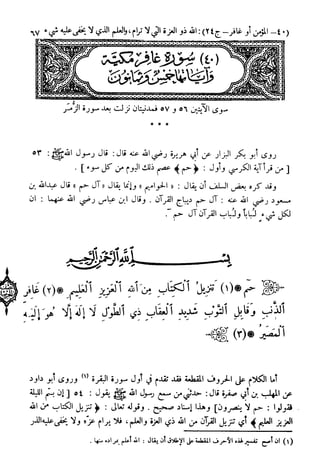 (٤٠- المؤمن أو غافر - ج ٢٤): الله ذو العزة التي لا ترام، والعلم الذي لا يخفى عليه شيء ٦٧
(٤٠) سورة غافر مكية
وآياتها خمس وثمانون
سوى الآيتين ٥٦ و ٥٧ فمدنيتان نزلت بعد سورة الزمر
* * *
روى أبو بكر البزار عن أبي هريرة رضي الله عنه قال: قال رسول الله ﷺ: ٥٣
[ من قرأ آية الكرسي وأول : ﴿ حم ﴾ عصم ذلك اليوم من كل سوء ] .
وقد كره بعض السلف أن يقال : « الحواميم » وإنما يقال « آل حم » قال عبدالله بن
مسعود رضي الله عنه : آل حم ديباج القرآن . وقال ابن عباس رضي الله عنهما : ان
لكل شيء لباباً ولُباب القرآن آل حم .
بسم الله الرحمن الرحيم
حم * (١) تنزيل الكتاب من الله العزيز العليم * (٢) غافر
الذنب وقابل التوب شديد العقاب ذي الطول لا إله إلا هو إليه
المصير * (٣)
أما الكلام على الحروف المقطعة فقد تقدم في أول سورة البقرة (١) وروى أبو داود
عن المهلب بن أبي صفرة قال: حدثني من سمع رسول الله ﷺ يقول : ٥٤ [ إن بيتم الليلة
فقولوا : حم لا ينصرون] وهذا إسناد صحيح . وقوله تعالى : ﴿ تنزيل الكتاب من الله
العزيز العليم ﴾ أي تنزيل القرآن من الله ذي العزة والعلم، فلا يرام عزه ولا يخفى عليه الذر
(١) ان أصح تفسير لهذه الأحرف المقطعة على الإطلاق أن يقال : الله أعلم بمراده منها .